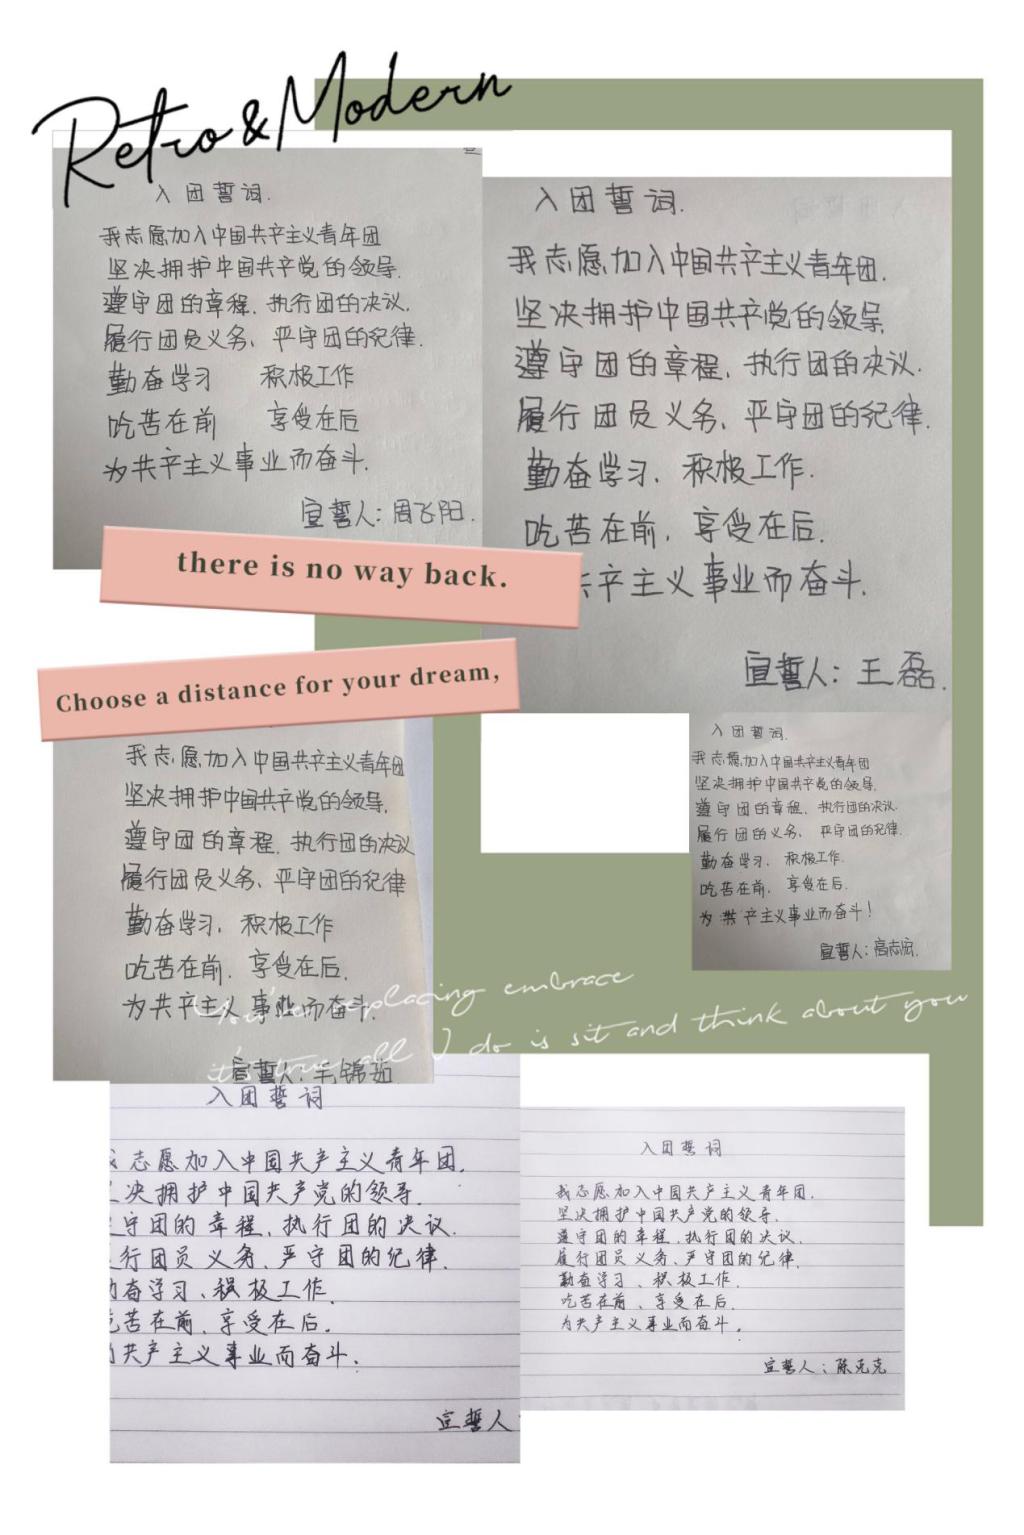 Retro & Modern
入团誓词.
我志愿加入中国共产主义青年团
坚决拥护中国共产党的领导.
遵守团的章程、执行团的决议.
履行团员义务、严守团的纪律.
勤奋学习 积极工作
吃苦在前 享受在后
为共产主义事业而奋斗.
宣誓人:周飞阳.
入团誓词.
我志愿加入中国共产主义青年团.
坚决拥护中国共产党的领导.
遵守团的章程、执行团的决议.
履行团员义务、严守团的纪律.
勤奋学习、积极工作.
吃苦在前,享受在后.
共产主义事业而奋斗.
宣誓人:王磊.
there is no way back.
Choose a distance for your dream,
我志愿加入中国共产主义青年团
坚决拥护中国共产党的领导.
遵守团的章程、执行团的决议
履行团员义务、严守团的纪律
勤奋学习、积极工作
吃苦在前.享受在后.
为共产主义事业而奋斗.
宣誓人:毛锦茹
入团誓词.
我志愿加入中国共产主义青年团
坚决拥护中国共产党的领导.
遵守团的章程、执行团的决议.
履行团的义务、严守团的纪律.
勤奋学习、积极工作.
吃苦在前、享受在后.
为共产主义事业而奋斗!
宣誓人:高志宏.
replacing embrace
it's true all I do is sit and think about you
入团誓词
志愿加入中国共产主义青年团.
决拥护中国共产党的领导.
守团的章程、执行团的决议.
行团员义务、严守团的纪律.
奋学习、积极工作.
苦在前、享受在后.
共产主义事业而奋斗.
宣誓人
入团誓词
我志愿加入中国共产主义青年团.
坚决拥护中国共产党的领导.
遵守团的章程、执行团的决议.
履行团员义务、严守团的纪律.
勤奋学习、积极工作.
吃苦在前、享受在后.
为共产主义事业而奋斗.
宣誓人:陈克克